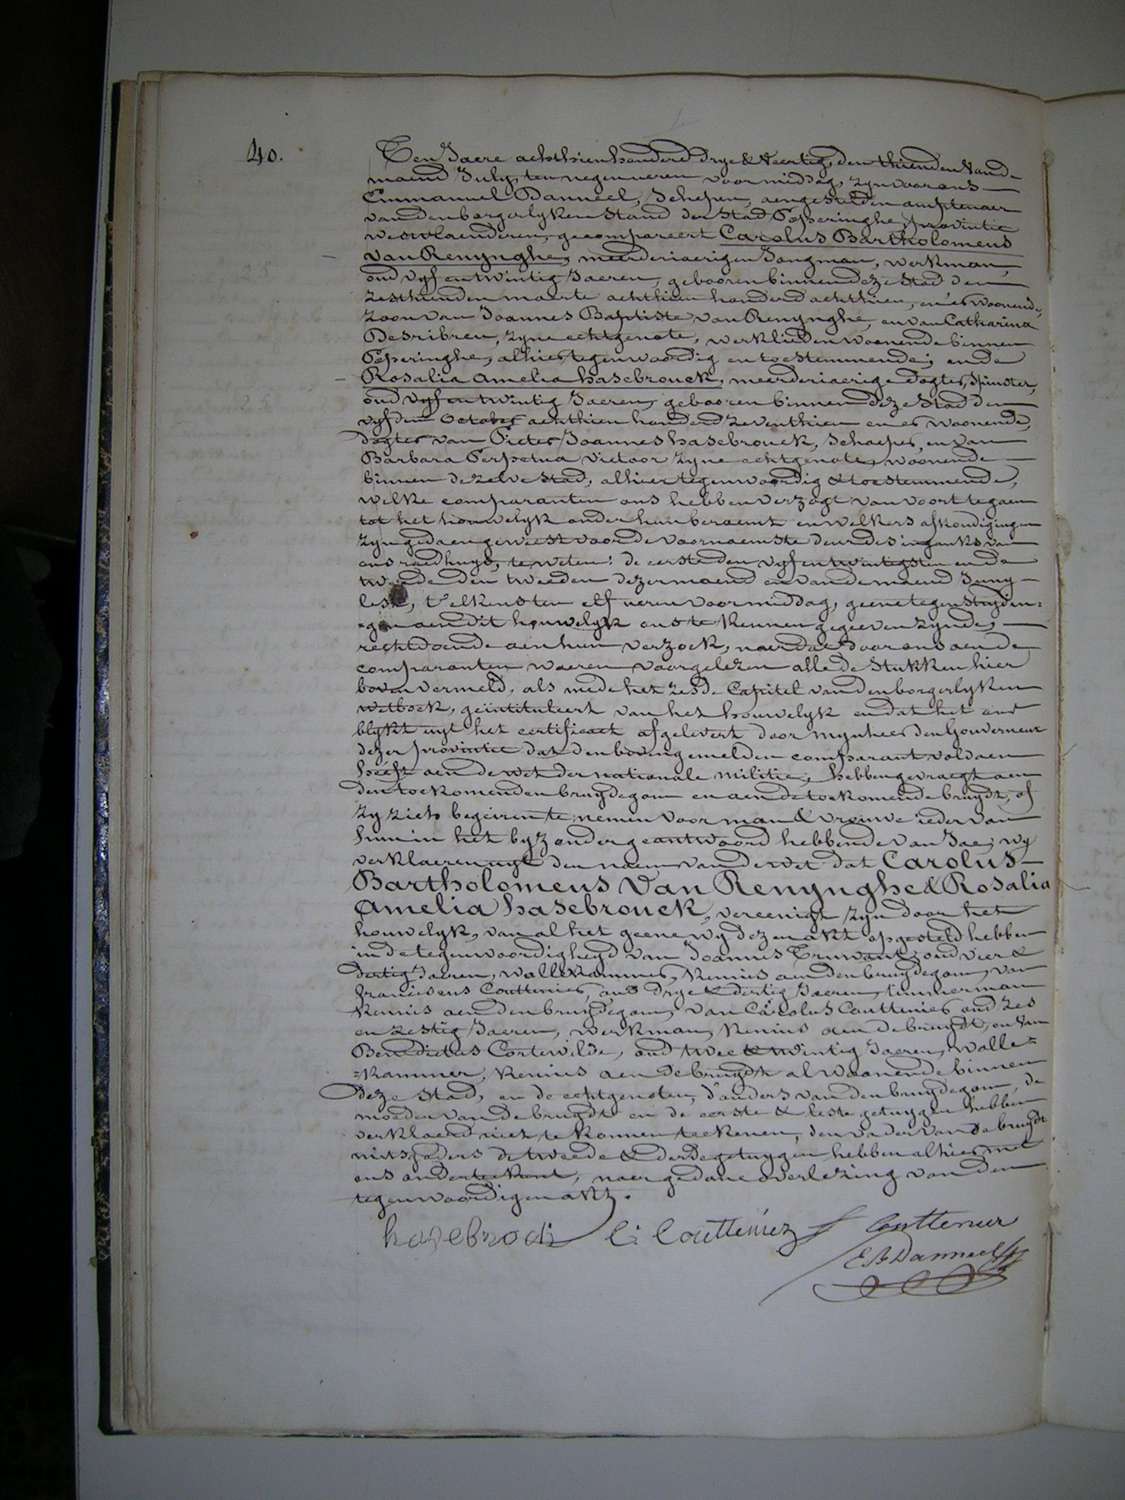 40.
Ten Jaere achthien honderd drye & veertig, den thienden van de
maend July, ten negen uren voormiddag, zyn voor ons
Emmanuel Danneel, Schepen, aengestelden amptenaer
van den borgerlyken Stand der Stad Poperinghe, provintie
westvlaenderen, gecompareert Carolus Bartholomeus
van Renynghe, meerderiaerigen Jongman, werkman,
oud vyf en twintig Jaeren, gebooren binnen deze Stad den
zesthienden maerte achthien honderd achthien, en er woonende,
zoon van Joannes Baptiste van Renynghe, en van Catharina
zyne echtgenote, werklieden woonende binnen
Poperinghe, alhier tegenwoordig en toestemmende; ende
Rosalia Amelia hasebrouck, meerderiaerige dogter, Spinster,
oud vyf en twintig Jaeren, gebooren binnen deze Stad den
vyfden October achthien honderd zeventhien en er woonende,
dogter van Pieter Joannes hasebrouck, Schaeper, en van
Barbara Perpetua Victoor zyne echtgenote, woonende
binnen dezelve Stad, alhier tegenwoordig & toestemmende,
welke comparanten ons hebben verzogt van voort te gaen
tot het houwelyk onder hun beraemt en welkers afkondigingen
zyn gedaen geweest voor de voornaemste deure des ingанks van
ons raedhuys, te weten: de eerste den vyf en twintigsten en de
tweede den tweeden dezer maend en van de maend Juny
lest, t'elkens ten elf uren voormiddag, geene tegenstryden-
gen aen dit houwelyk ons te kennen gegeven zynde,
rechtdoende aen hun verzoek, naer dat door ons aen de
comparanten waeren voorgelezen alle de Stukken hier
boven vermeld, als mede het zesde Capitel van den borgerlyken
wetboek, geintituleert van het houwelyk en dat het ons
blykt uyt het certificaet afgelevert door mynheer den Gouverneur
dezer provintie dat den bovengemelden comparant voldaen
heeft aen de wet der nationale militie, hebben gevraegt aen
den toekomenden bruydegom en aen de toekomende bruydt, of
zy zich begeiren te nemen voor man & vrouwe ieder van
hun in het byzonder geantwoord hebbende van Jae, wy
verklaeren uyt den naem van de wet dat Carolus
Bartholomeus Van Renynghe & Rosalia
Amelia hasebrouck, vereenigt zyn door het
houwelyk, van al het geene wy dezen akt opgesteld hebben
in de tegenwoordigheyd van Joannes oud vier &
dertig Jaeren, wollekammer, Kennis aen den bruydegom, van
Franciscus Couttenier, oud drye & dertig Jaeren, timmerman
Kennis aen den bruydegom, van Carolus Couttenier, oud zes
en zestig Jaeren, werkman, Kennis aen de bruydt, en van
Benedictus Cortewilde, oud twee & twintig Jaeren, wolle-
kammer, Kennis aen de bruydt al woonende binnen
deze Stad, en de echtgenoten, d'ouders van den bruydegom, de
moeder van de bruydt en de eerste & leste getuygen hebben
verklaerd niet te konnen teekenen, den vader van de bruydt
mitsgaders de tweede & derde getuygen hebben alhier met
ons onderteekent, naer gedane overlezing van den
tegenwoordigen akt.
hasebrock C: Couttenier F Couttenier
E B Danneel